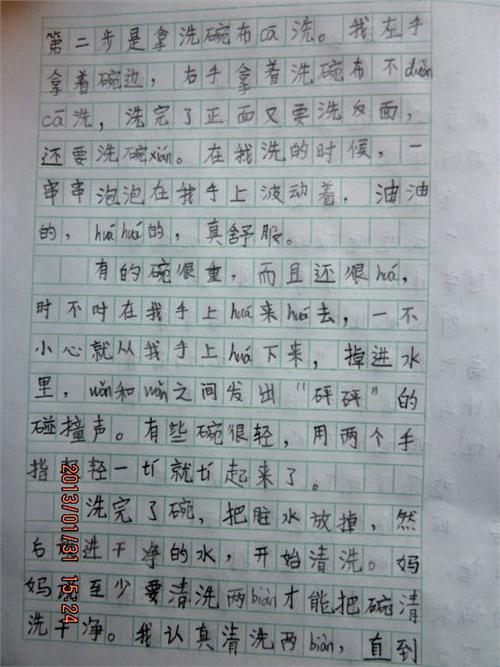 第二步是拿洗碗布cā洗。我左手
拿着碗边，右手拿着洗碗布不duàn
cā洗，洗完了正面又要洗反面，
还要洗碗xián。在我洗的时候，一
串串泡泡在我手上波动着，油油
的，huá huá的，真舒服。
有的碗很重，而且还很huá，
时不时在我手上huá来huá去，一不
小心就从我手上huá下来，掉进水
里，wǎn和wǎn之间发出“砰砰”的
碰撞声。有些碗很轻，用两个手
指轻轻一tí就tí起来了。
洗完了碗，把脏水放掉，然
后 进干净的水，开始清洗。妈
妈 至少要清洗两biàn才能把碗清
洗干净。我认真清洗两biàn，直到
2013/01/31 15:24